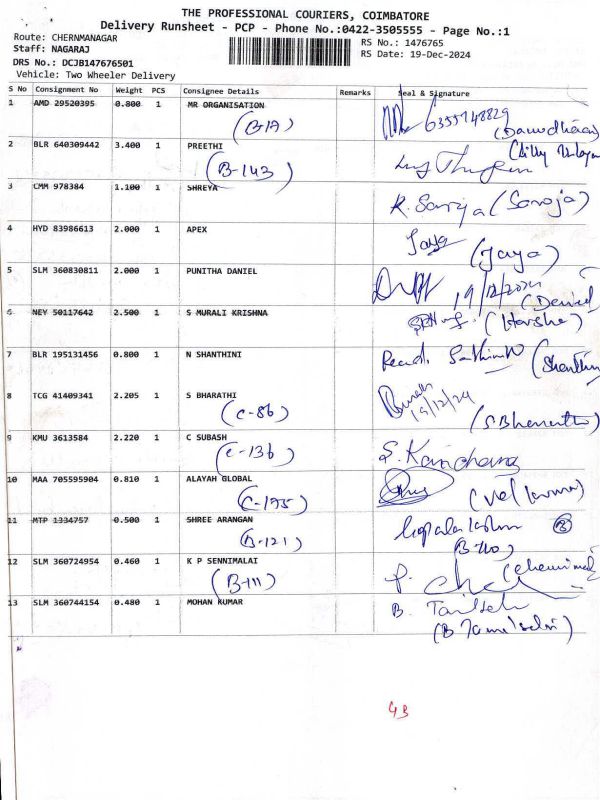 THE PROFESSIONAL COURIERS, COIMBATORE
Delivery Runsheet - PCP - Phone No.:0422-3505555 - Page No.:1
Route: CHERNMANAGAR
Staff: NAGARAJ
RS No.: 1476765
RS Date: 19-Dec-2024
DRS No.: DCJB147676501
Vehicle: Two Wheeler Delivery
S No Consignment No Weight PCS Consignee Details Remarks Seal & Signature
1 AMD 29520395 0.800 1 MR ORGANISATION 6355748829
2 BLR 640309442 3.400 1 PREETHI
(B-143)
3 CMM 978384 1.100 1 SHREYA (Saroja)
4 HYD 83986613 2.000 1 APEX Jaya (Jaya)
5 SLM 360830811 2.000 1 PUNITHA DANIEL 19/12/2024
6 NEY 50117642 2.500 1 S MURALI KRISHNA
7 BLR 195131456 0.800 1 N SHANTHINI
8 TCG 41409341 2.205 1 S BHARATHI
(C-86) 19/12/24
9 KMU 3613584 2.220 1 C SUBASH S. Kanchana
(C-136)
10 MAA 705595904 0.810 1 ALAYAH GLOBAL
(C-175)
11 MTP 1334757 0.500 1 SHREE ARANGAN
(B-121)
12 SLM 360724954 0.460 1 K P SENNIMALAI
(B-111)
13 SLM 360744154 0.480 1 MOHAN KUMAR